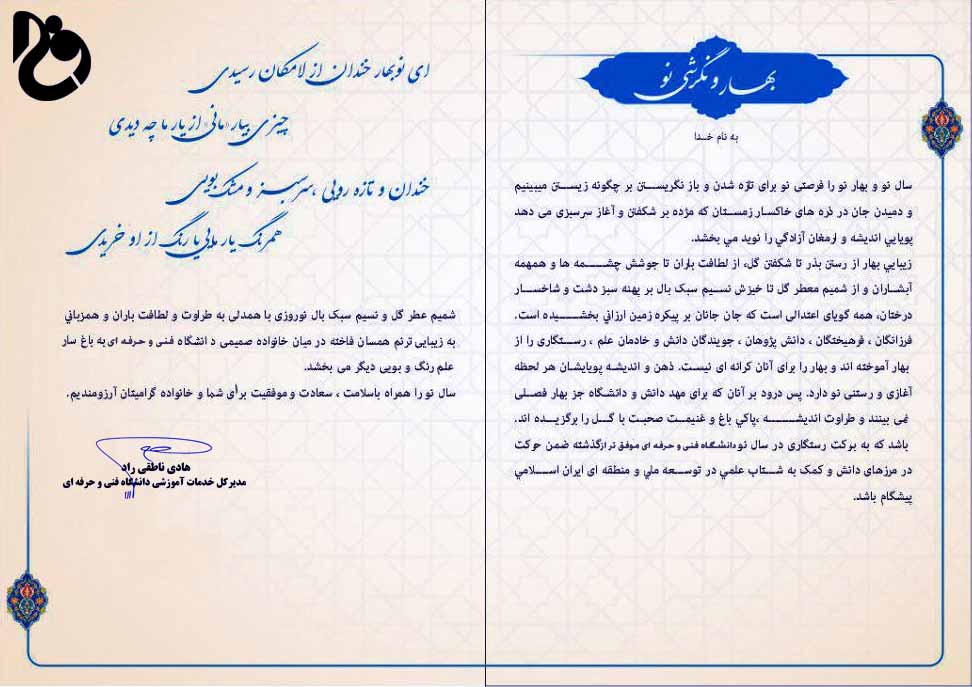 بهار و نگرشی نو
به نام خدا
سال نو و بهار نو را فرصتی نو برای تازه شدن و باز نگریستن بر چگونه زیستن میبینیم
و دمیدن جان در ذره های خاکسار زمستان که مژده بر شکفتن و آغاز سرسبزی می دهد
پویایي اندیشه و ارمغان آزادگي را نوید مي بخشد.
زیبایي بهار از رستن بذر تا شکفتن گل، از لطافت باران تا جوشش چشمه ها و همهمه
آبشاران و از شمیم معطر گل تا خیزش نسیم سبک بال بر پهنه سبز دشت و شاخسار
درختان، همه گویای اعتدالی است که جان جانان بر پیکره زمین ارزاني بخشیده است.
فرزانگان ، فرهیختگان ، دانش پژوهان ، جویندگان دانش و خادمان علم ، رستگاری را از
بهار آموخته اند و بهار را برای آنان کرانه ای نیست. ذهن و اندیشه پویایشان هر لحظه
آغازی و رستنی نو دارد. پس درود بر آنان که برای مهد دانش و دانشگاه جز بهار فصلی
نمی بینند و طراوت اندیشه ،پاکي باغ و غنیمت صحبت با گل را برگزیده اند.
باشد که به برکت رستگاری در سال نو دانشگاه فنی و حرفه ای موفق تر ازگذشته ضمن حرکت
در مرزهای دانش و کمک به شتاب علمي در توسعه ملي و منطقه ای ایران اسلامي
پیشگام باشد.
ای نوبهار خندان از لامکان رسیدی
چیزی بیار«مانی» از یار ما چه دیدی
خندان و تازه رویی ،سرسبز و مشک بویی
همرنگ یار مایی یا رنگ از او خریدی
شمیم عطر گل و نسیم سبک بال نوروزی با همدلی به طراوت و لطافت باران و همزباني
به زیبایی ترنم همسان فاخته در میان خانواده صمیمی دانشگاه فنی و حرفه ای به باغ سار
علم رنگ و بویی دیگر می بخشد.
سال نو را همراه باسلامت ، سعادت و موفقیت برأی شما و خانواده گرامیتان آرزومندیم.
هادی ناطقی راد
مدیرکل خدمات آموزشی دانشگاه فنی و حرفه ای